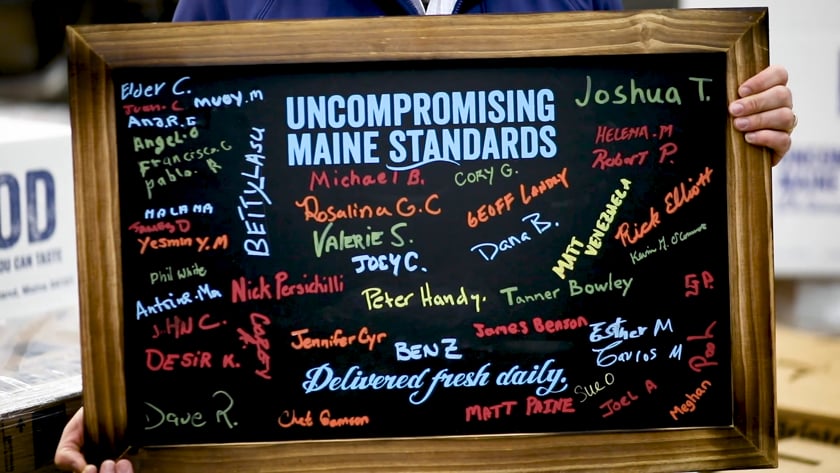 Elder C.
Juan. C
muoy.m
Ana.R.C
Angel.O
Francesca.C
pablo. R
BETTYLASU
MALAMA
James D
Yesmin Y.M
Phil White
Antoine.Ma
JHN C.
Casey
DESiR K.
Dave R.
UNCOMPROMISING
MAINE STANDARDS
Joshua T.
HELENA.M
Robert P.
Michael B.
CORY G.
Rosalina G.C
GEOFF LANDRY
VALERIE S.
Dana B.
JOEY C.
MATT VENEZUELA
Rick Elliott
Kevin M. O'Connor
Nick Persichilli
Peter Handy.
Tanner Bowley
S.P.
Jennifer Cyr
James Benson
Esther M
BENZ
Carlos M
Delivered fresh daily.
Sue O
JOEL A
Meghan
Chet Gamson
MATT PAINE
OD
OU CAN TASTE
land, Maine